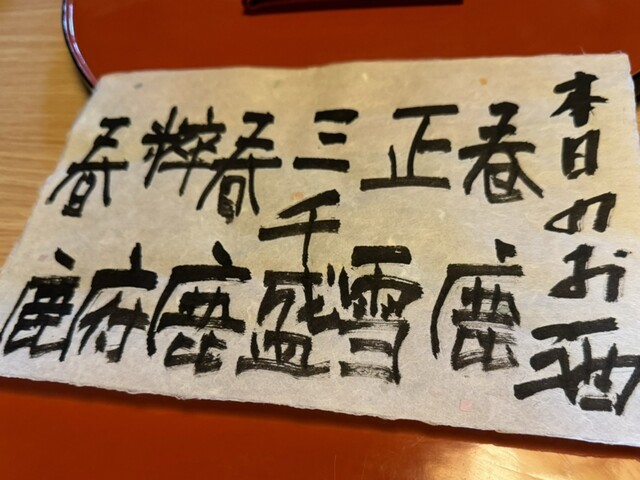 本日のお酒
春鹿
正雪
三千盛
春鹿
粋府
春鹿